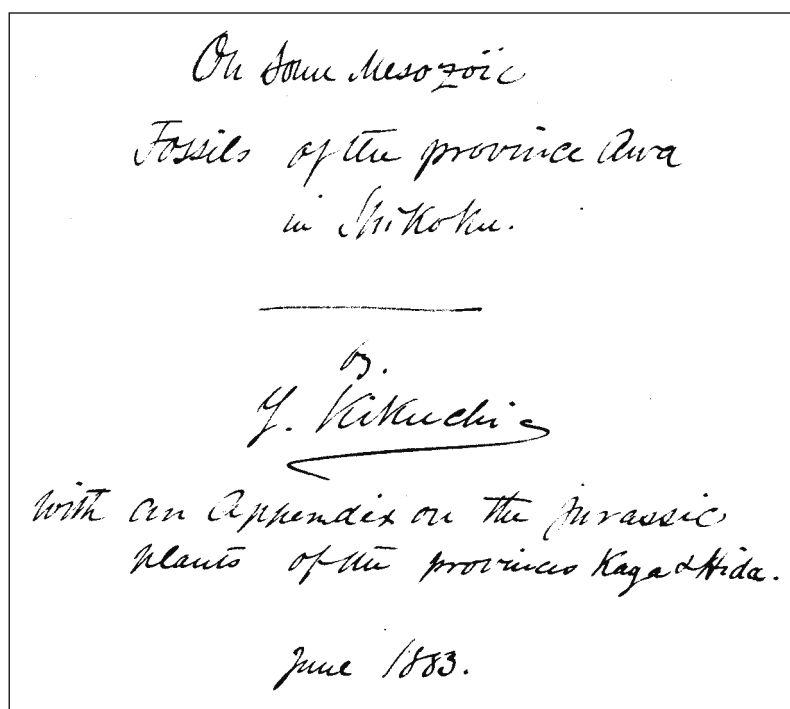 On Some Mesozoic
Fossils of the province Awa
in Shikoku.
by.
Y. Kikuchi
with an Appendix on the jurassic
plants of the provinces Kaga & Hida.
June 1883.